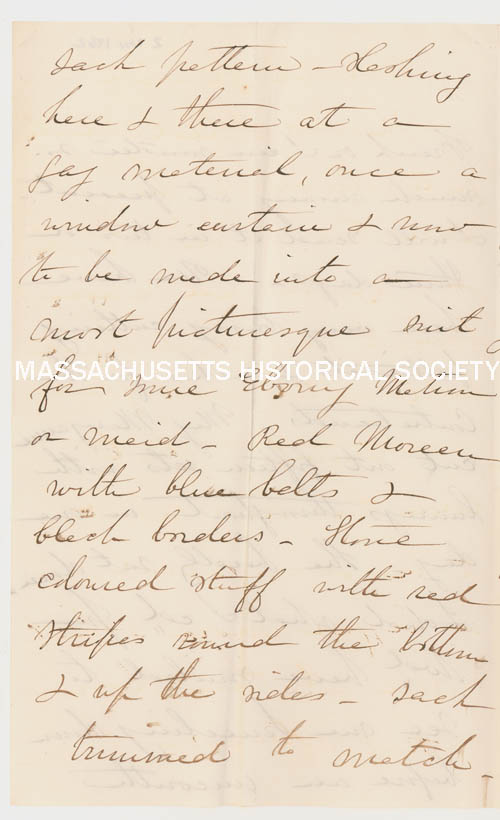 sack pattern – flashing
here & there at a
gay material, once a
window curtain & now
to be made into a
most picturesque suit
MASSACHUSETTS HISTORICAL SOCIETY
for some Ebony Matron
or maid – Red Moreen
with blue belts &
black borders – Stone
coloured stuff with red
stripes round the bottom
& up the sides – sack
trimmed to match –